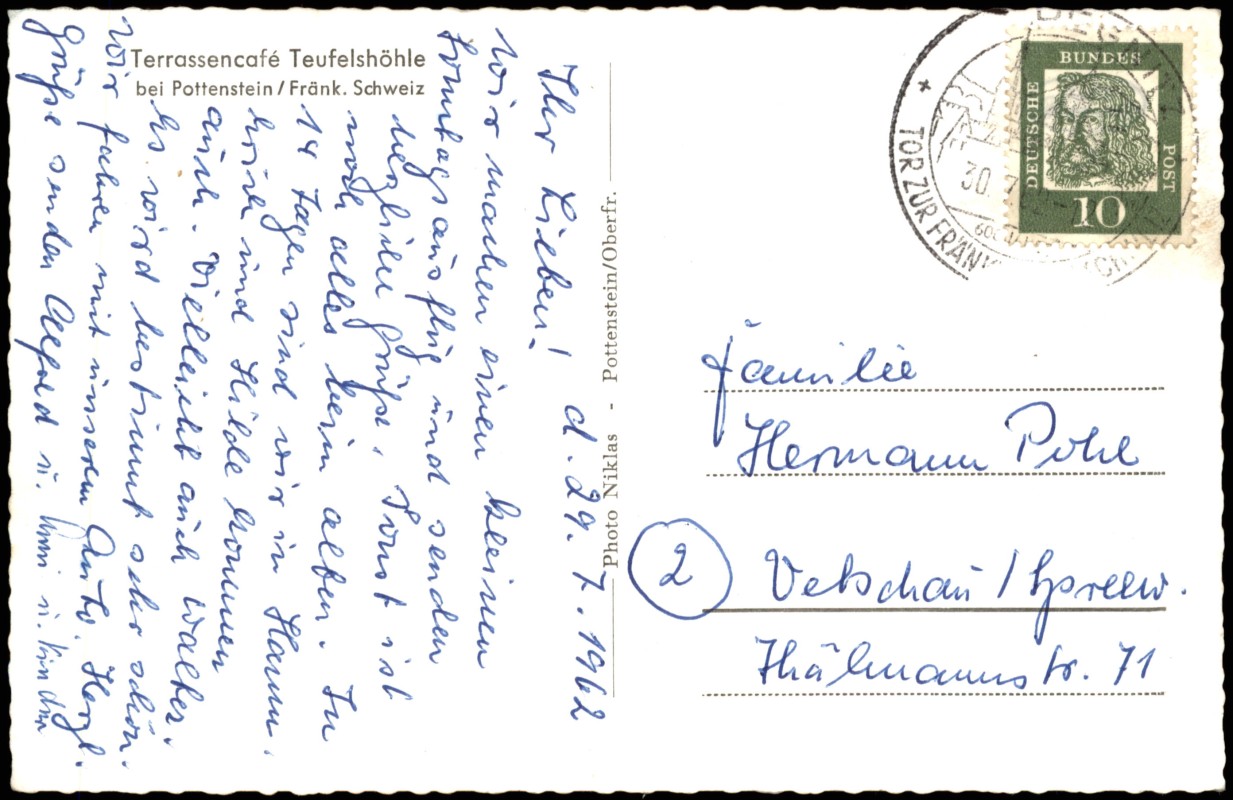 Terrassencafé Teufelshöhle
bei Pottenstein / Fränk. Schweiz
Ihr Lieben! d. 29. 7. 1962
Wir machen einen kleinen
Sonntagsausflug und senden
herzliche Grüße. Sonst ist
noch alles beim alten. In
14 Tagen sind wir in Hamm.
Erich und Hilde kommen
auch. Vielleicht auch Walter.
Es wird bestimmt sehr schön.
Wir fahren mit unserem Auto. Herzl.
Grüße senden Alfred u. u. Kinder
Photo Niklas - Pottenstein/Oberfr.
TOR ZUR FRÄNK
30. 7.
DEUTSCHE
BUNDES
POST
10
Familie
Hermann Pohl
2
Vetschau / Spreew.
Thälmannstr. 71